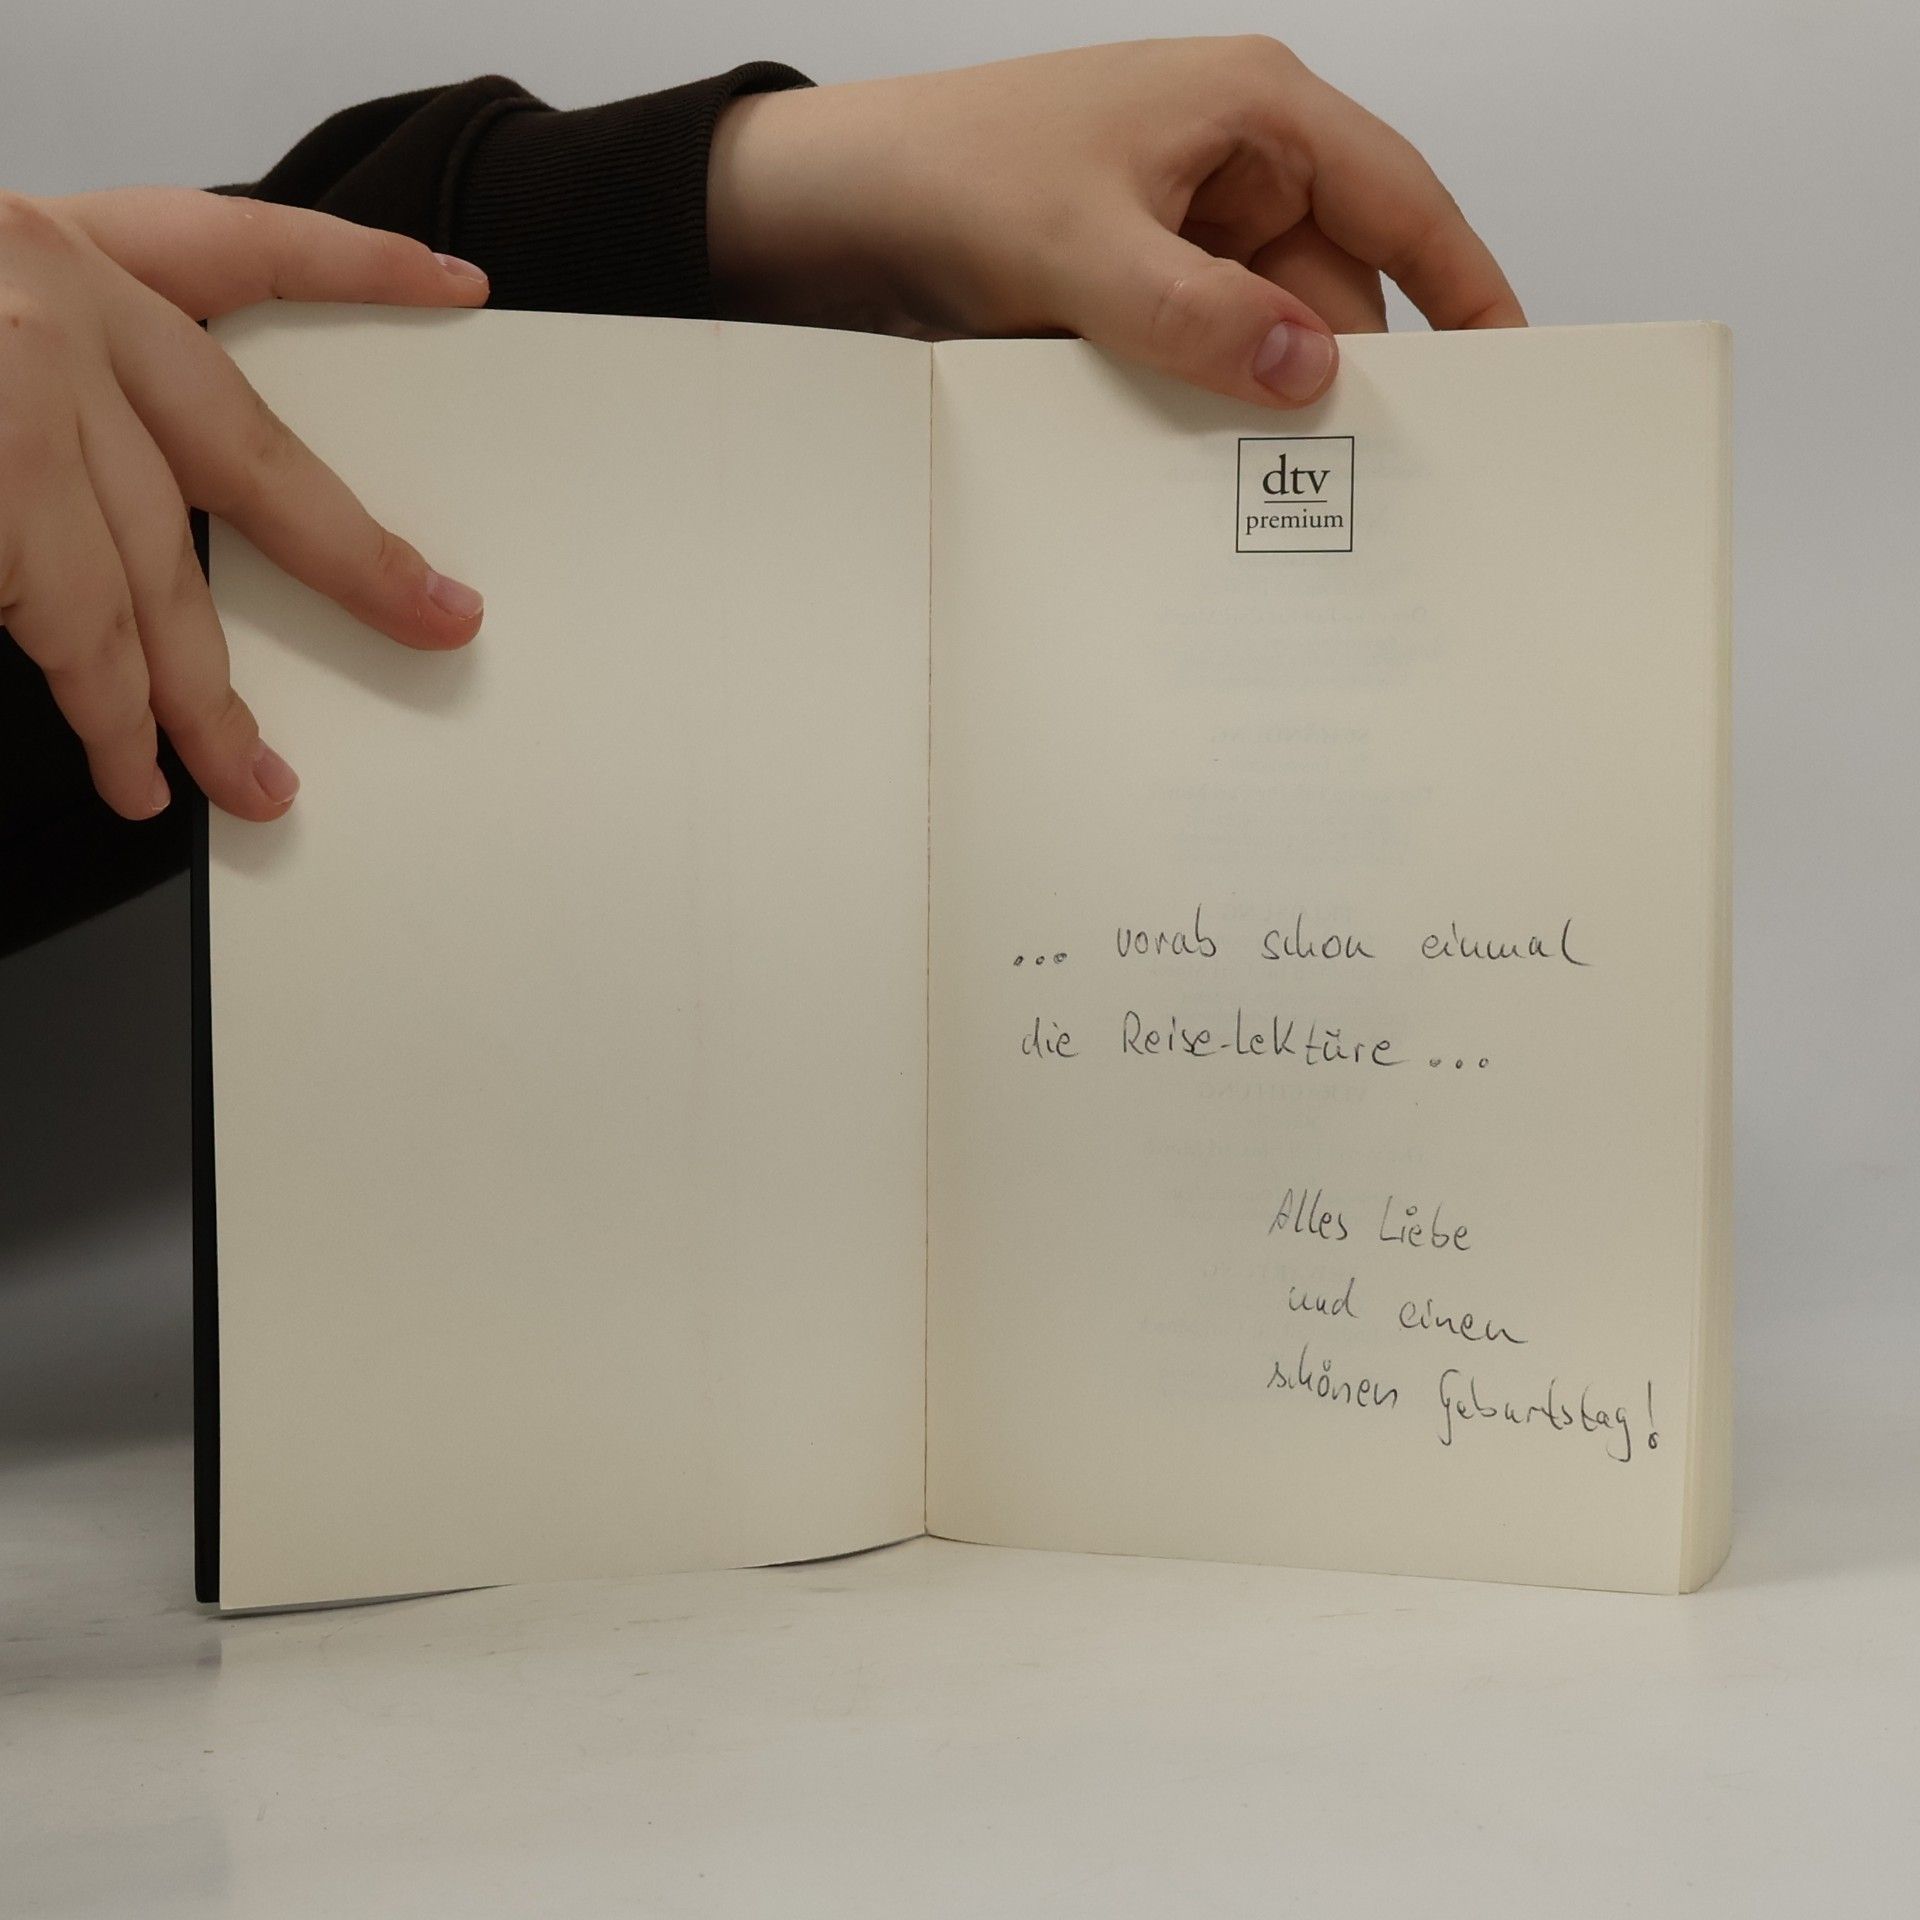 dtv
premium
... vorab schon einmal
die Reise-Lektüre...
Alles Liebe
und einen
schönen Geburtstag!